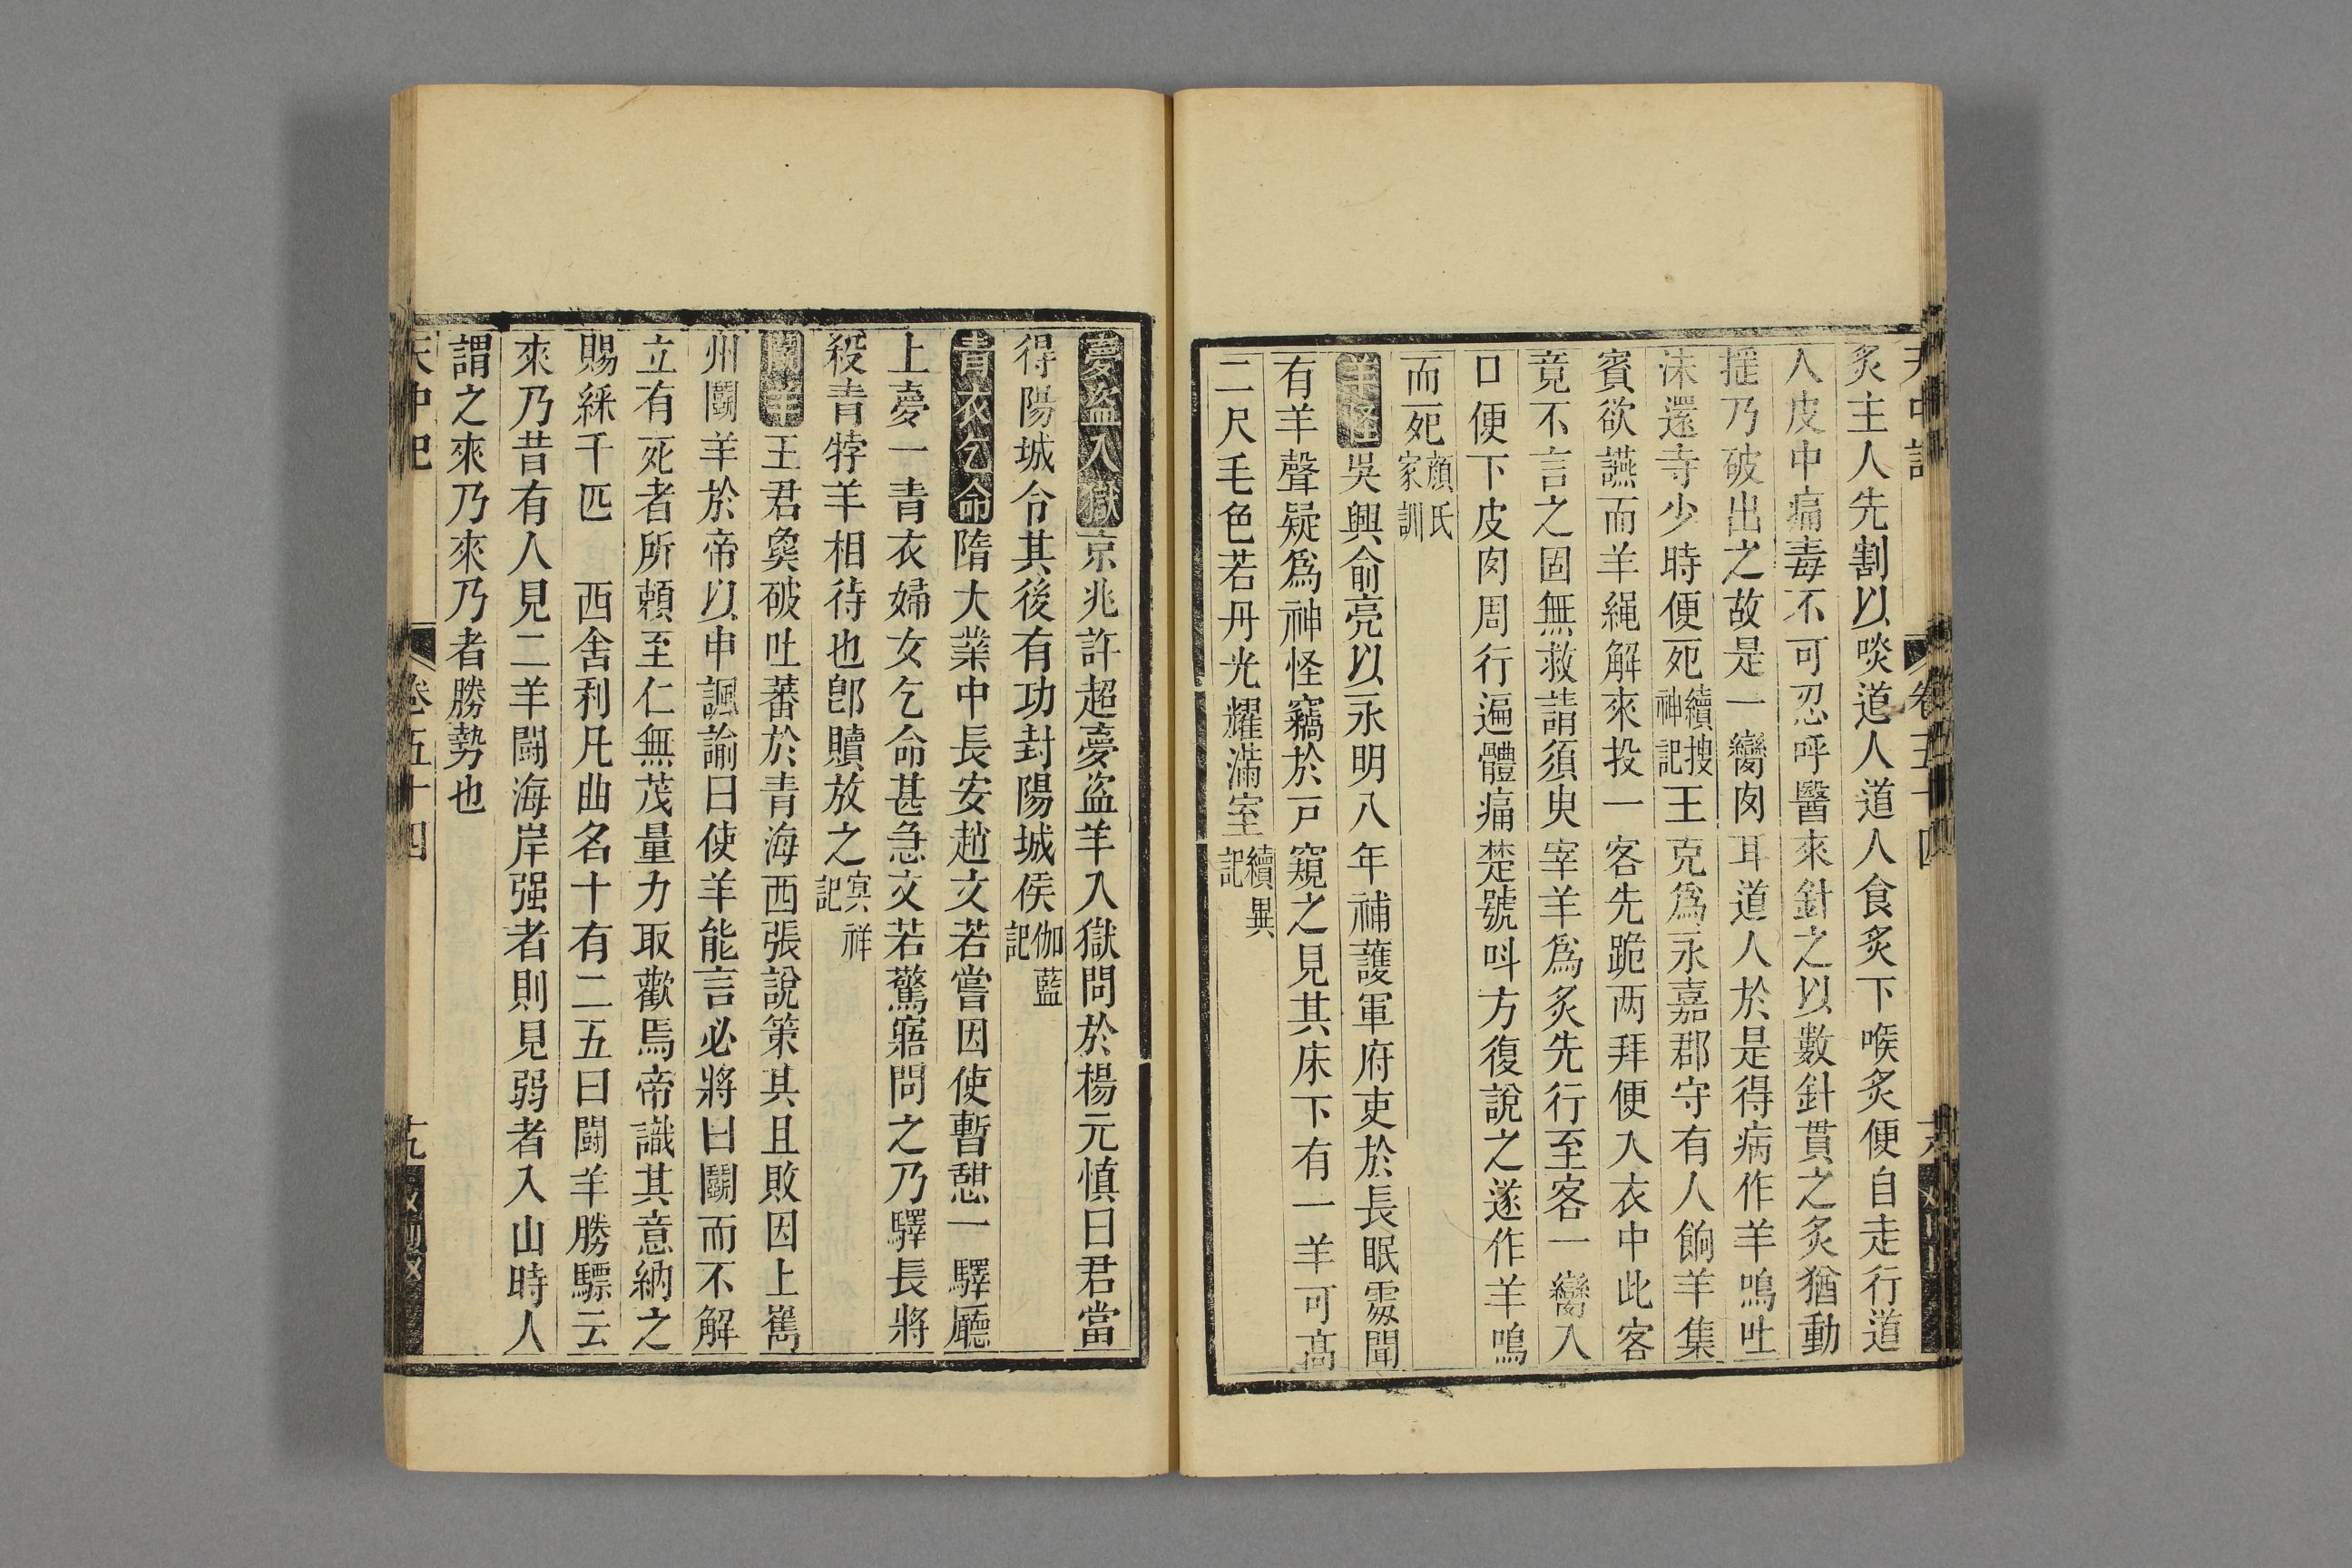 天中記
卷五十四
炙主人先割以啖道人道人食炙下喉炙便自走行道
人皮中痛毒不可忍呼醫來針之以數針貫之炙猶動
摇乃破出之故是一臠肉耳道人於是得病作羊鳴吐
沫還寺少時便死續搜神記王克為永嘉郡守有人餉羊集
賓欲讌而羊繩解來投一客先跪两拜便入衣中此客
竟不言之固無救請須臾宰羊為炙先行至客一臠入
口便下皮肉周行遍體痛楚號呌方復說之遂作羊鳴
而死顏氏家訓
羊怪吳興俞亮以永明八年補護軍府吏於長眠處聞
有羊聲疑為神怪竊於戸窺之見其床下有一羊可高
二尺毛色若丹光耀滿室續異記
夢盜入獄京兆許超夢盜羊入獄問於楊元慎曰君當
得陽城令其後有功封陽城侯伽藍記
青衣乞命隋大業中長安趙文若嘗因使暫憇一驛廳
上夢一青衣婦女乞命甚急文若驚寤問之乃驛長將
殺青牸羊相待也卽贖放之冥祥記
鬪羊王君㚟破吐蕃於青海西張說策其且敗因上巂
州鬪羊於帝以申諷諭曰使羊能言必將曰鬪而不解
立有死者所頼至仁無茂量力取歡焉帝識其意納之
賜綵千匹　西舍利凡曲名十有二五曰鬪羊勝驃云
來乃昔有人見二羊鬪海岸强者則見弱者入山時人
謂之來乃來乃者勝勢也
天中記
卷五十四
十九